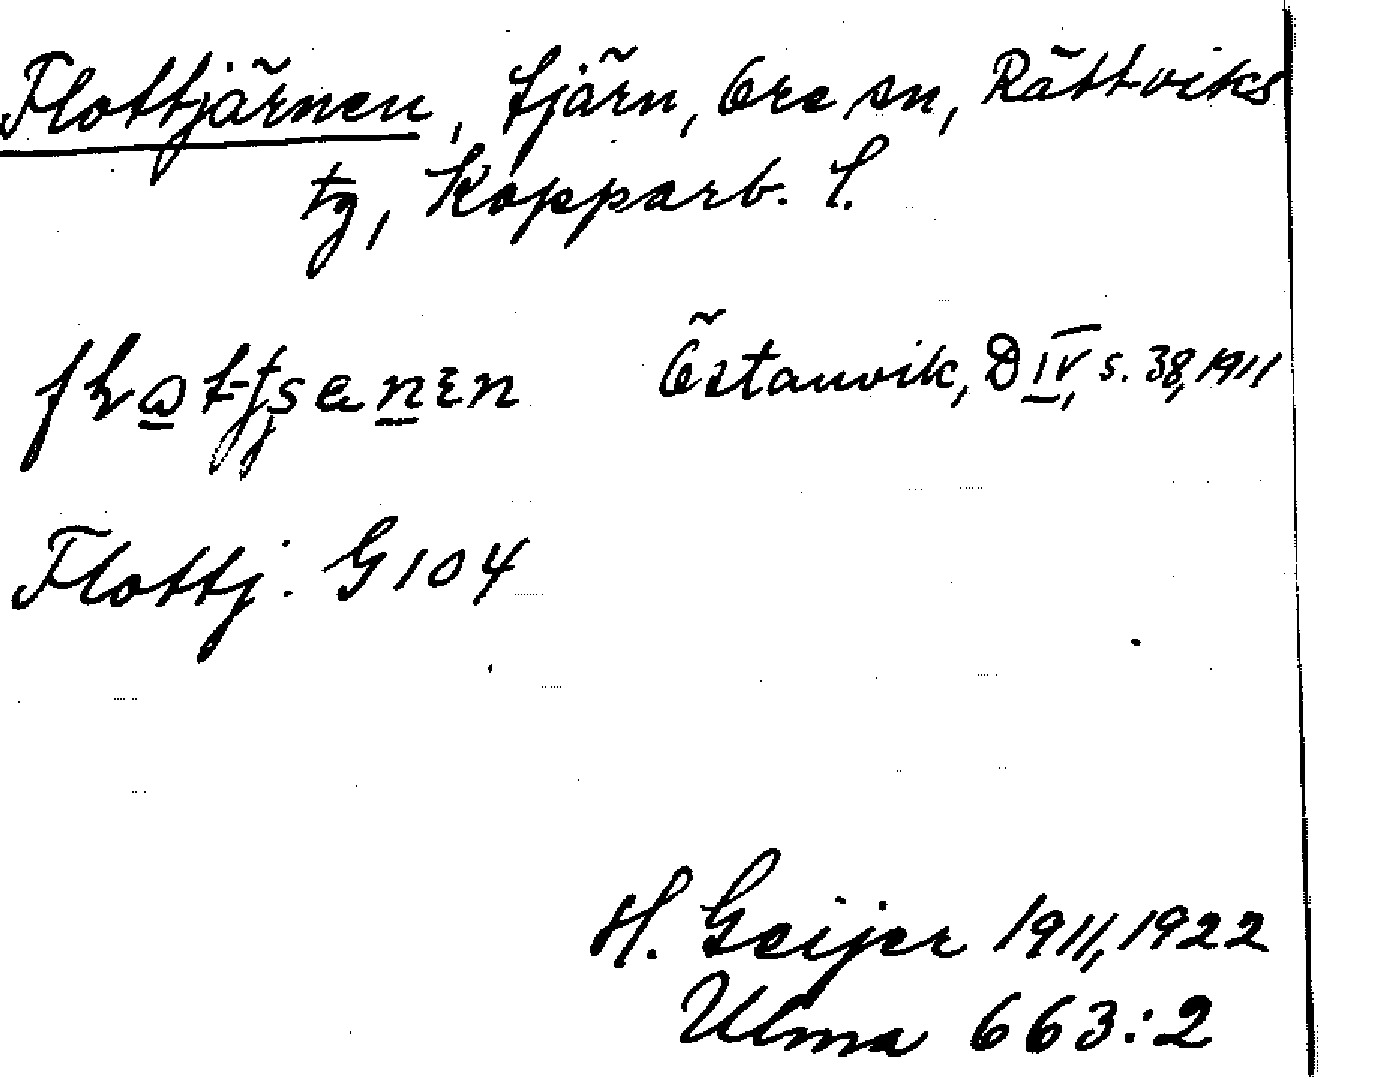 Flottjärnen, tjärn, Ore sn, Rättviks
tg, Kopparb. l.
Östanvik, D IV, s. 38, 1911
Flottj. G 104
H. Geijer 1911, 1922
Ulma 663:2